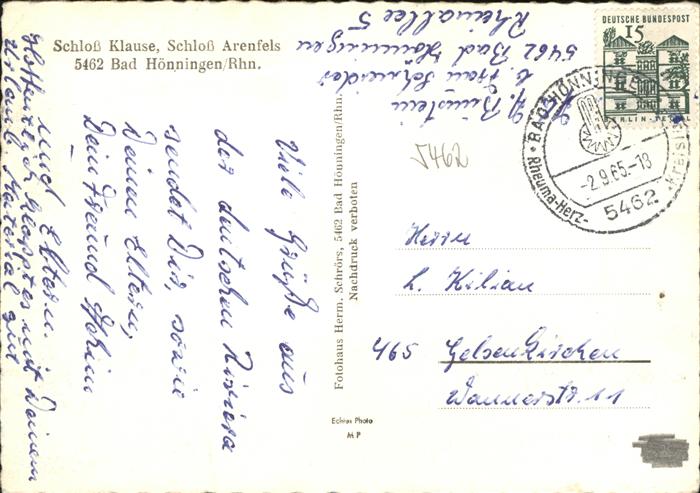 Schloß Klause, Schloß Arenfels
5462 Bad Hönningen/Rhn.
H. Brünstein
b. Frau Schneider
5462 Bad Hönningen
Rheinallee 5
DEUTSCHE BUNDESPOST
15
BERLIN-TEGEL
BAD HÖNNINGEN
-2.9.65.-18
5462
Rheuma-Herz-
Kreisl
5462
Viele Grüße aus
der deutschen Riviera
sendet Dir, sowie
Deinen Eltern,
Dein Freund
und Eltern.
Hoffentlich klappt es mit Deinem
Urlaub. Material gut
Fotohaus Herm. Schrörs, 5462 Bad Hönningen/Rhn.
Nachdruck verboten
Echtes Photo
M P
Herrn
L. Kilian
465 Gelsenkirchen
Wannerstr. 11